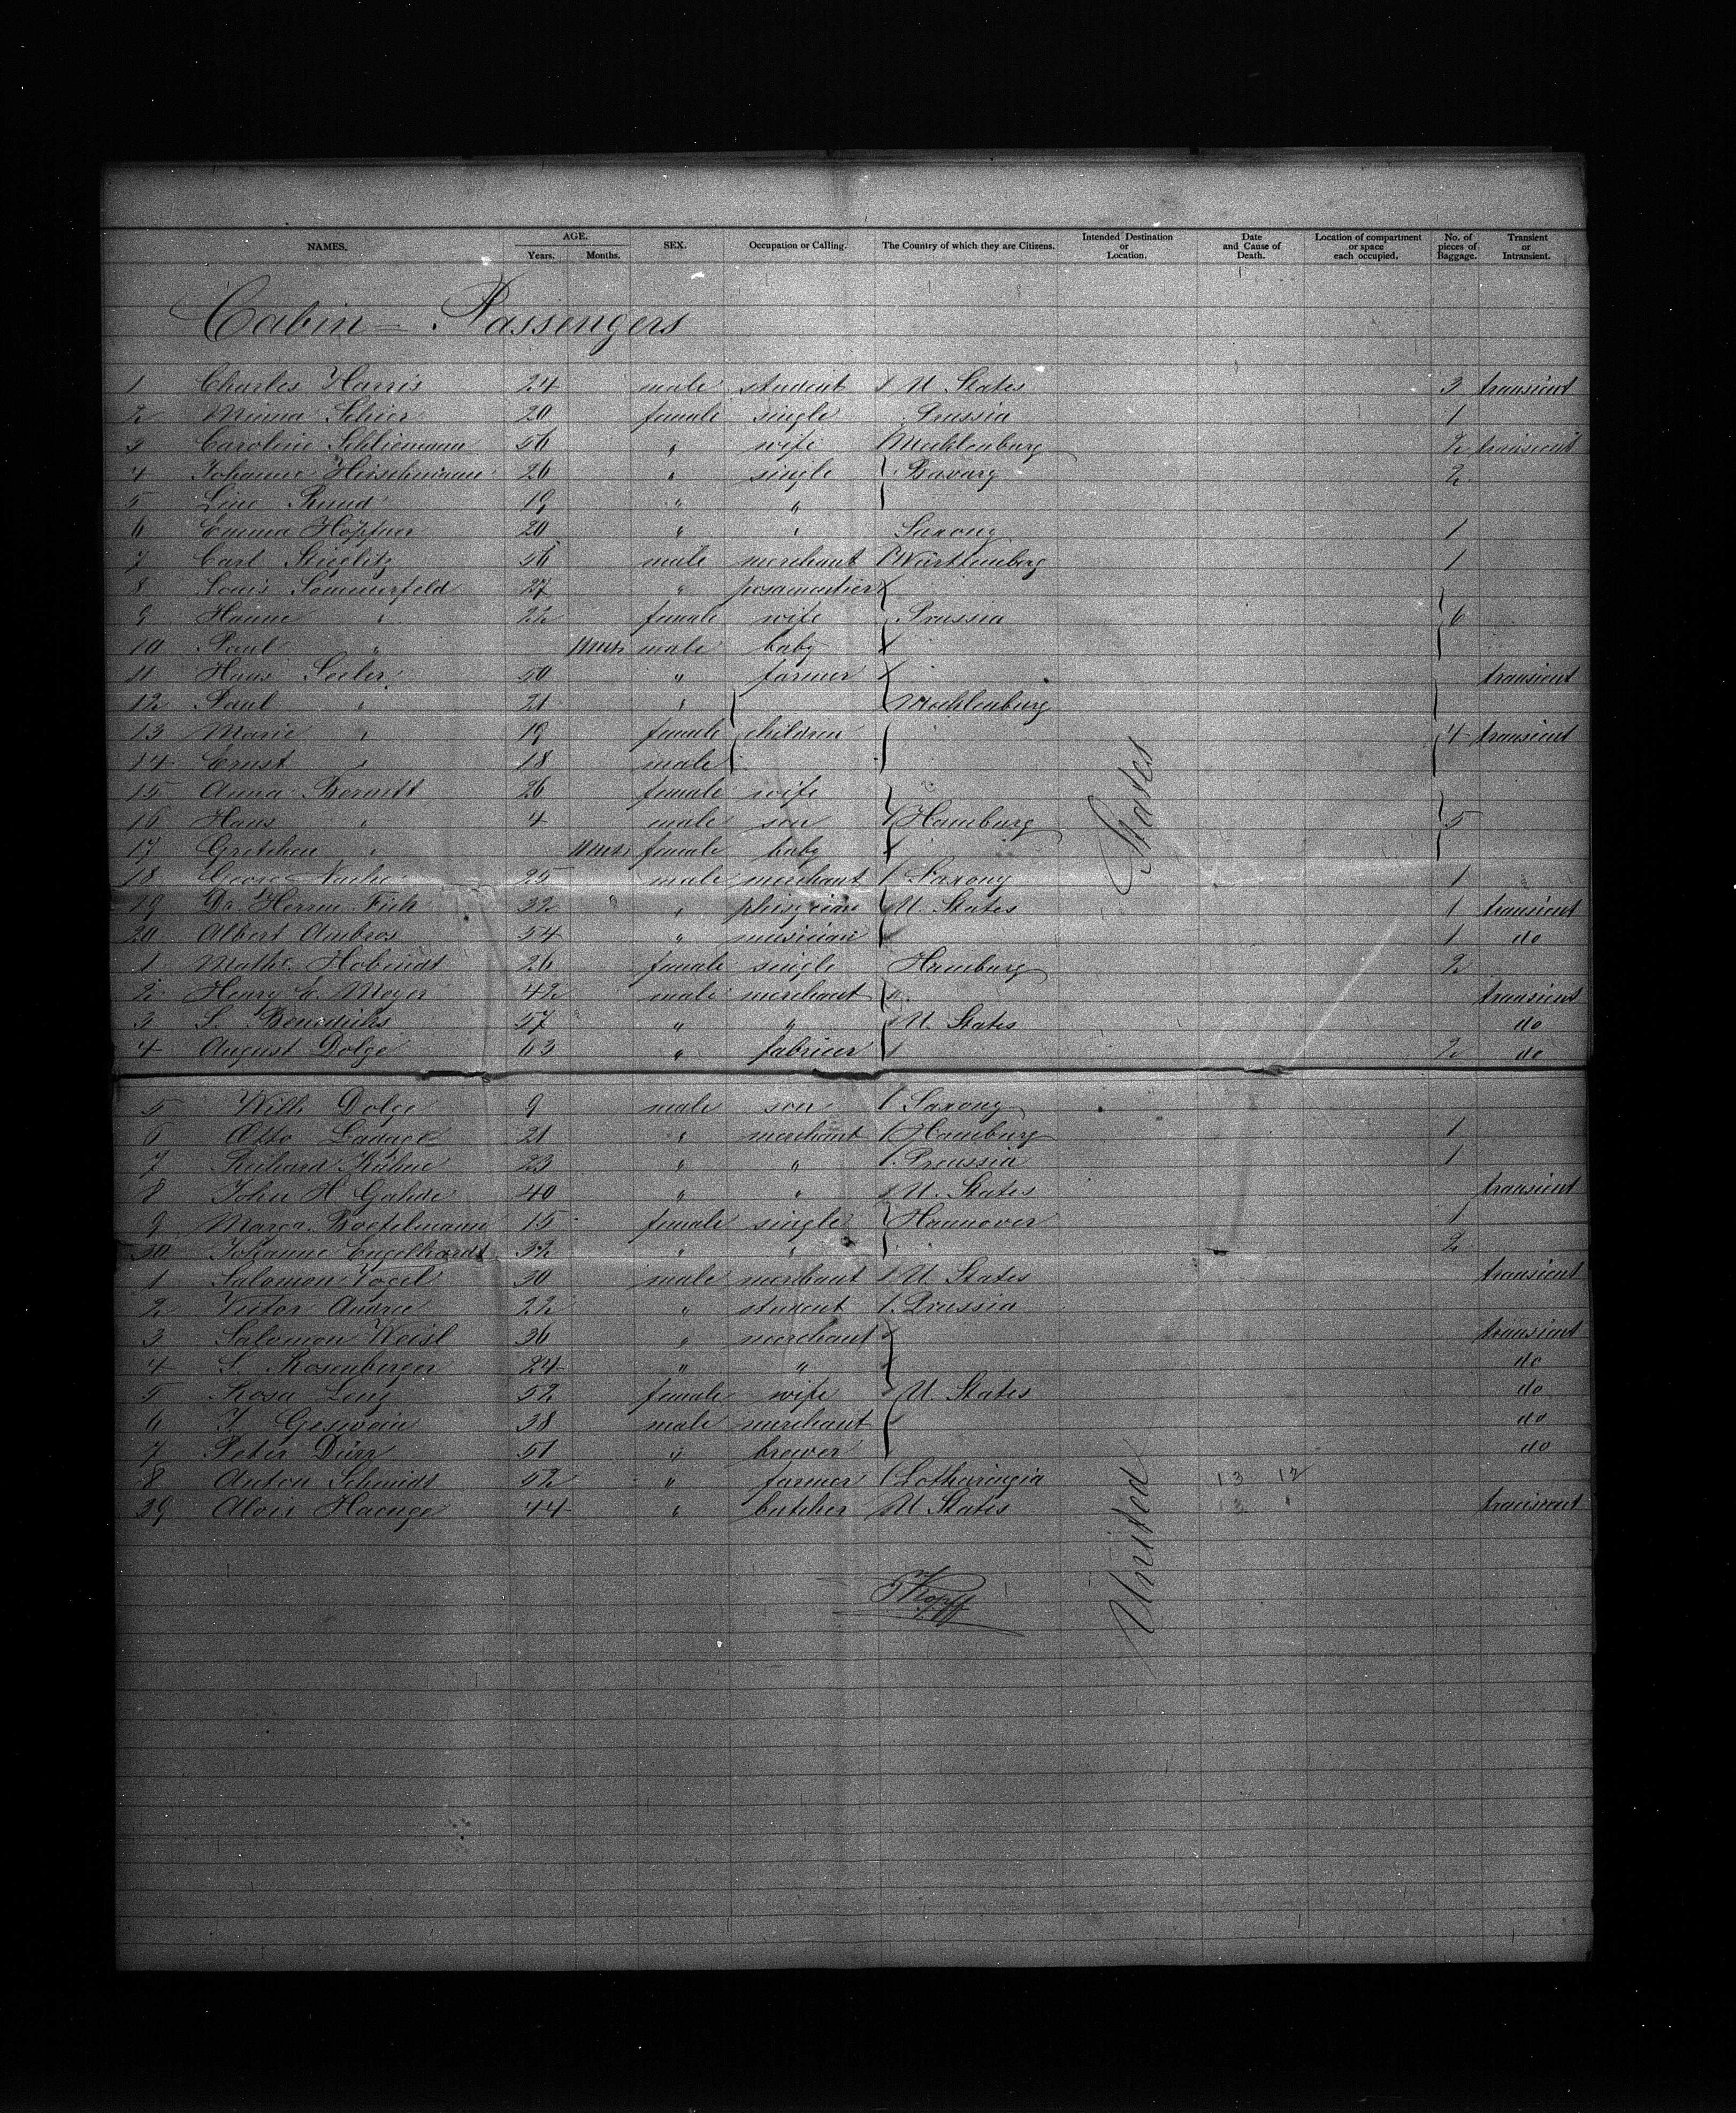 NAMES. AGE. Years. Months. SEX. Occupation or Calling. The Country of which they are Citizens. Intended Destination or Location. Date and Cause of Death. Location of compartment or space each occupied. No. of pieces of Baggage. Transient or Intransient.
Cabin = Passengers
1 Charles Harris 24 male student U. States 3 transient
2 Minna Schier 20 female single Prussia 1
3 Caroline Schliemann 56 " wife Mecklenburg 2 transient
4 Johanne Hirschmann 26 " single Bavary 2
5 Line Rund 19 " "
6 Emma Höpfner 20 " " Saxony 1
7 Carl Stieglitz 56 male merchant Württemberg 1
8 Louis Sommerfeld 27 " posamentier
9 Hanne " 22 female wife Prussia 6
10 Paul " male baby
11 Hans Seeler 50 " farmer transient
12 Paul " 21 " Mecklenburg
13 Marie " 19 female children 4 transient
14 Ernst " 18 male
15 Anna Bornitt 26 female wife
16 Hans " 4 male son Hamburg 5
17 Gretchen " female baby
18 25 male merchant Saxony 1
19 Dr. Herm. Fick 32 " physician U. States 1 transient
20 Albert Ambros 54 " musician 1 do
1 Mathe. Hobindt 26 female single Hamburg 2
2 Henry E. Meyer 42 male merchant transient
3 S. Bendicks 57 " " U. States do
4 August Dolge 63 " fabricer 2 do
5 Wilh Dolge 9 male son Saxony
6 Otto 21 " merchant Hamburg 1
7 Richard Kühne 23 " " Preussia 1
8 John H. Gahde 40 " " U. States transient
9 Marga. Boetelmann 15 female single Hannover 1
30 Johanne Engelhardt 32 " " 2
1 Salomon Vogel 30 male merchant U. States transient
2 Victor Andree 22 " student Prussia
3 Salomon Weisl 36 " merchant transient
4 S. Rosenberger 24 " " do
5 Rosa Lenz 52 female wife U. States do
6 J. Geswein 38 male merchant do
7 Peter Dürr 51 " brewer do
8 Anton Schmidt 52 " farmer Lotharingia 13 12
39 Alois Haenge 44 " butcher U States 13 " transient
United States
Kopff